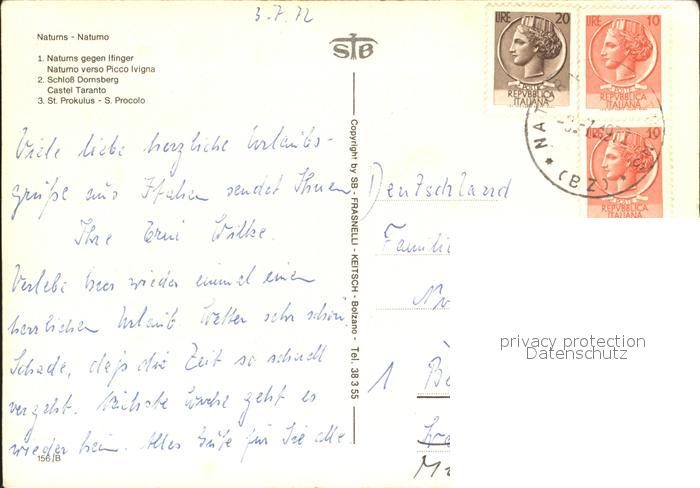 3.7.72
Naturns - Naturno
1. Naturns gegen Ifinger
Naturno verso Picco Ivigna
2. Schloß Dornsberg
Castel Taranto
3. St. Prokulus - S. Procolo
STB
LIRE 20
POSTE
REPVBBLICA
ITALIANA
10
POSTE
REPVBBLICA
ITALIANA
10
REPVBBLICA
ITALIANA
(BZ)
Viele liebe herzliche Urlaubs-
grüße aus Italien sendet Ihnen
Ihre Erni Wilke.
Verlebe hier wieder einmal einen
herrlichen Urlaub. Wetter sehr schön.
Schade, daß die Zeit so schnell
vergeht. Nächste Woche geht es
wieder heim. Alles Gute für Sie alle
156/B
Copyright by SB - FRASNELLI - KEITSCH - Bolzano - Tel. 38 3 55
Deutschland
Familie
1
privacy protection
Datenschutz